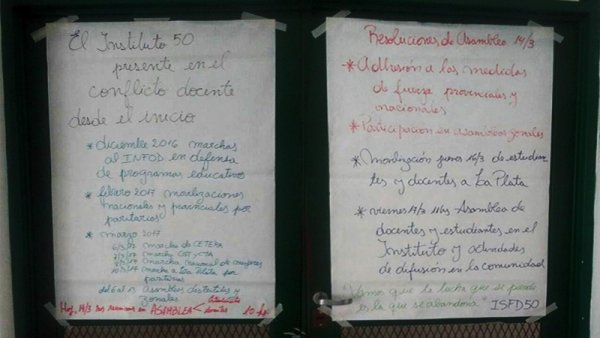 El Instituto 50
presente en el
conflicto docente
desde el inicio
* diciembre 2016 marchas
al INFOD en defensa
de programas educativos
* febrero 2017 movilizaciones
nacionales y provinciales por
paritarias
* marzo 2017
6/3/17 marcha de CETERA
7/3/17 marcha CGT y CTA
marcha nacional de mujeres
marcha a La Plata por
paritarias
asambleas distritales y
zonales
Hoy, 14/3 nos reunimos en ASAMBLEA 10 hs
Resoluciones de Asamblea 14/3
* Adhesión a las medidas
de fuerza provinciales y
nacionales
* Participación en asambleas zonales
* Movilización jueves 16/3 de estudian
tes y docentes a La Plata
* viernes 17/3 11hs Asamblea de
docentes y estudiantes en el
Instituto y actividades
de difusión en la comunidad
Vamos que la lucha que se pierde
es la que se abandona" ISFD50